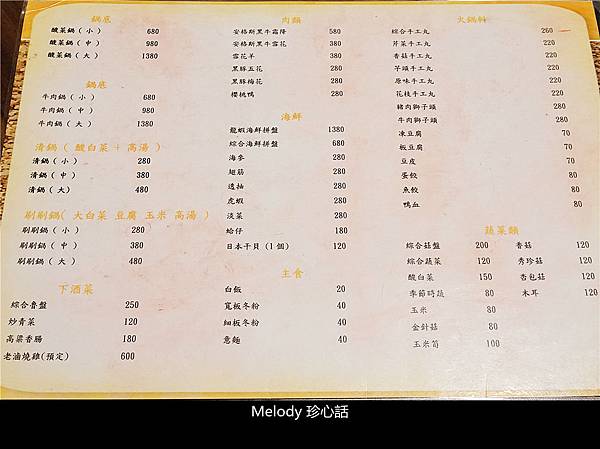 鍋底
酸菜鍋(小) 680
酸菜鍋(中) 980
酸菜鍋(大) 1380
鍋底
牛肉鍋(小) 680
牛肉鍋(中) 980
牛肉鍋(大) 1380
清鍋(酸白菜+高湯)
清鍋(小) 280
清鍋(中) 380
清鍋(大) 480
刷刷鍋(大白菜 豆腐 玉米 高湯)
刷刷鍋(小) 280
刷刷鍋(中) 380
刷刷鍋(大) 480
下酒菜
綜合魯盤 250
炒青菜 120
高粱香腸 180
老滷燒雞(預定) 600
肉類
安格斯黑牛霜降 580
安格斯黑牛雪花 380
雪花羊 380
黑豚五花 280
黑豚梅花 280
櫻桃鴨 280
海鮮
龍蝦海鮮拼盤 1380
綜合海鮮拼盤 680
海參 280
翅筋 280
透抽 280
虎蝦 280
淡菜 280
蛤仔 180
日本干貝(1個) 120
主食
白飯 20
寬板冬粉 40
細板冬粉 40
意麵 40
火鍋料
綜合手工丸 260
芹菜手工丸 220
香菇手工丸 220
芋頭手工丸 220
原味手工丸 220
花枝手工丸 220
豬肉獅子頭 220
牛肉獅子頭 220
凍豆腐 70
板豆腐 70
豆皮 70
蛋餃 80
魚餃 80
鴨血 80
蔬菜類
綜合菇盤 200 香菇 120
綜合蔬菜 120 秀珍菇 120
酸白菜 150 杏包菇 120
季節時蔬 80 木耳 120
玉米 80
金針菇 80
玉米筍 100
Melody 珍心話